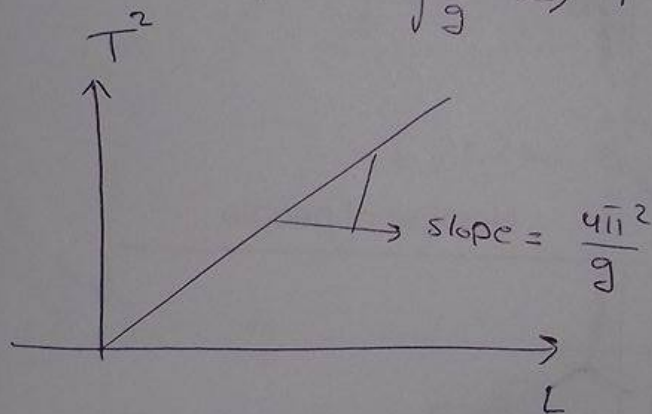 g
T²
slope = 4π²
g
L